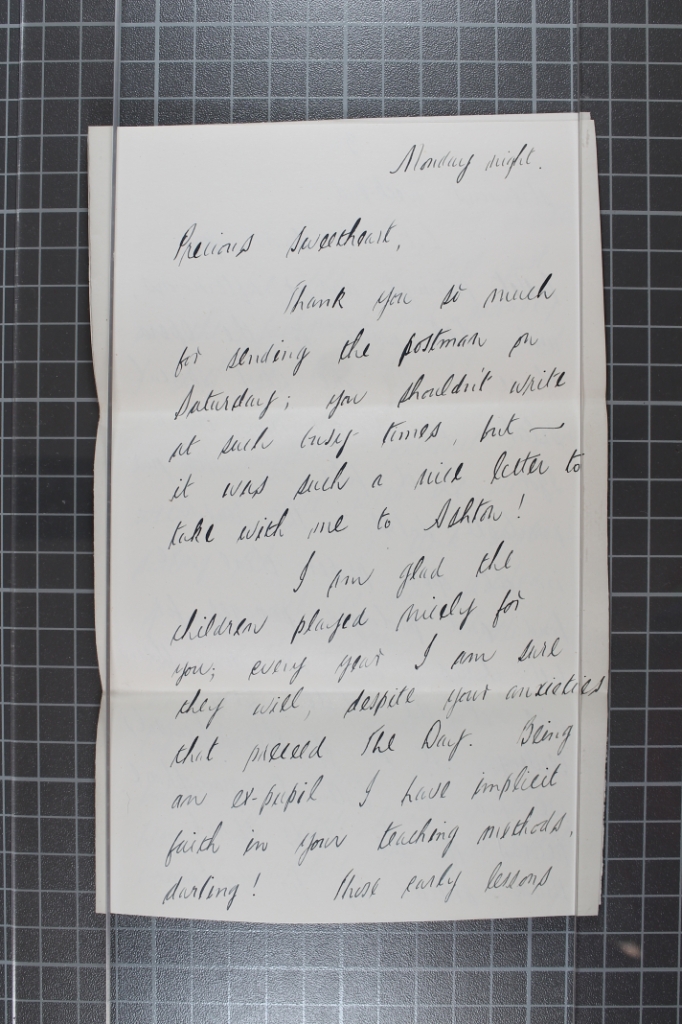 Monday night.
Precious Sweetheart,
Thank you so much
for sending the postman on
Saturday; you shouldn't write
at such busy times, but —
it was such a nice letter to
take with me to Ashton!
I am glad the
children played nicely for
you; every year I am sure
they will, despite your anxieties
that preceed The Day. Being
an ex-pupil I have implicit
faith in your teaching methods,
darling! Those early lessons